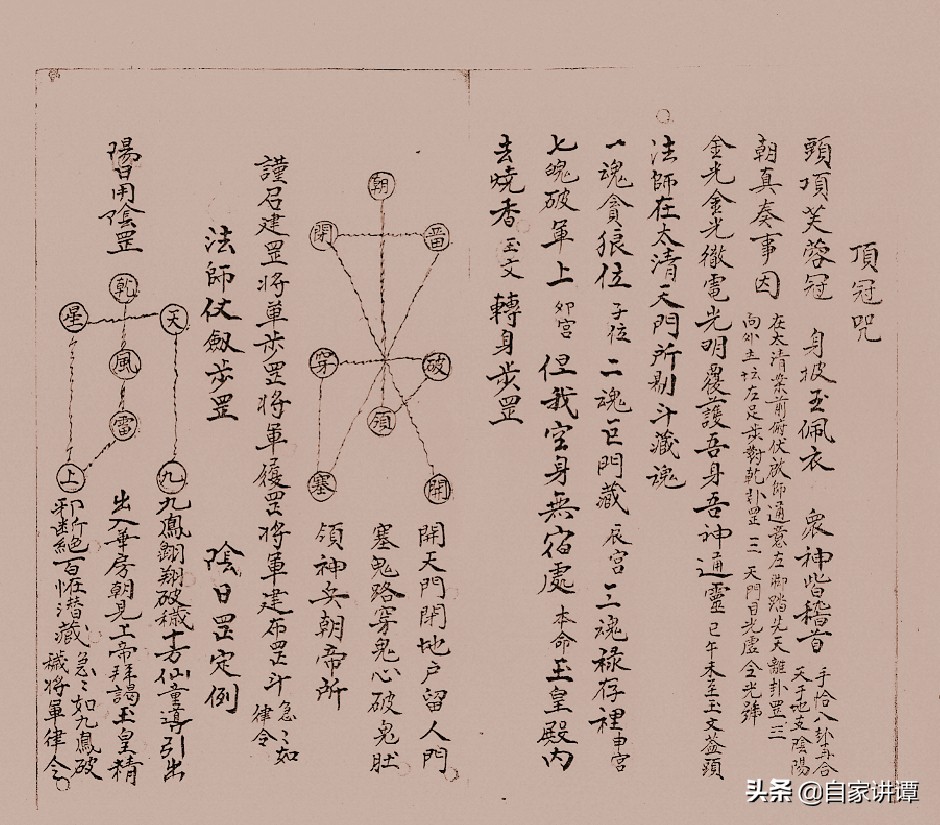 頂冠咒
頭頂芙蓉冠 身披玉佩衣 衆神皆稽首 手恰八卦再合
天干地支陰陽
朝真奏事因 在太清案前俯伏啟師通意左脚踏先天離卦罡三
向外主坛左足步對乾卦罡三 天門日光虚令光號
金光金光徹電光明覆護吾身吾神通靈 巳午未至玉文盖頭
法師在太清天門所剔斗藏魂
一魂貪狼位 子位 二魂巨門藏 辰宫 三魂祿存裡 申宫
七魄破軍上 卯宫 但我空身無宿處 本命 玉皇殿内
去燒香 玉文 轉身步罡
朝
閉 畱
穿 破
領
塞 開
開天門閉地户留人門
塞鬼路穿鬼心破鬼肚
領神兵朝帝所
謹召建罡將軍步罡將軍履罡將軍建布罡斗 急々如
律令
法師仗劔步罡 陰日罡定例
陽日用陰罡
乾
星 天
風
雷
上 九
九鳳翺翔破穢十方仙童導引出
出入華房朝見上帝拜謁玉皇精
邪断絶百怪潜藏 急々如九鳳破
穢將軍律令
头条 @自家讲谭